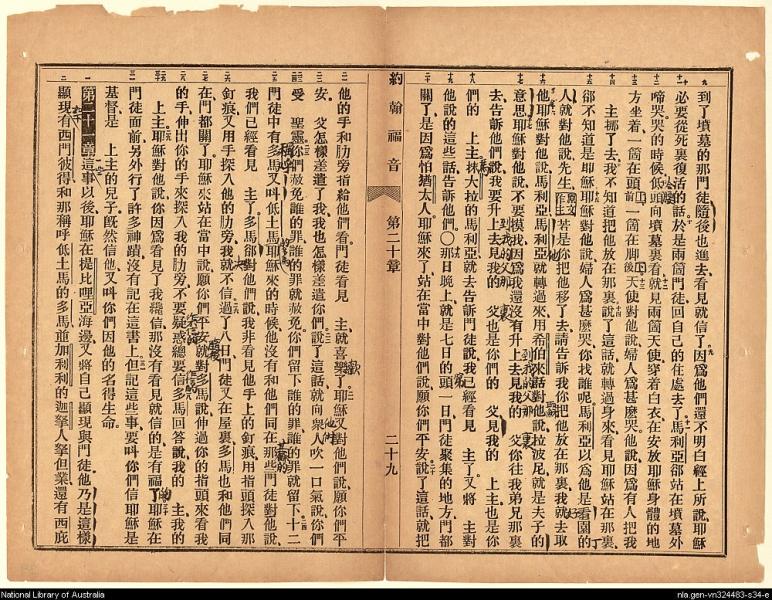 到了墳墓的那門徒隨後也進去看見就信了因爲他們還不明白經上所說耶穌
必要從死裏復活的話於是兩箇門徒回自己的住處去了馬利亞卻站在墳墓外
啼哭哭的時候低頭向墳墓裏看就見兩箇天使穿着白衣在安放耶穌身體的地
方坐着一箇在頭前一箇在脚後天使對他說婦人爲甚麽哭他說因爲有人把我
主挪了去我不知道把他放在那裏說了這話就轉過身來看見耶穌站在那裏
卻不知道是耶穌耶穌對他說婦人爲甚麽哭你找誰呢馬利亞以爲他是看園的
人就對他說先生若是你把他移了去請告訴我你把他放在那裏我就去取
他耶穌對他說馬利亞馬利亞就轉過來用希伯來話對他說拉波尼就是夫子的
意思耶穌對他說不要摸我因爲我還沒有升上去見我的 父你往我弟兄那裏
去告訴他們說我要升上去見我的 父也是你們的 父見我的 上主也是你
們的 上主抹大拉的馬利亞就去告訴門徒說我已經看見 主了又將 主對
他說的這些話告訴他們○那日晚上就是七日的頭一日門徒聚集的地方門都
關了是因爲怕猶太人耶穌來了站在當中對他們說願你們平安說了這話就把
約翰福音 第二十章 二十九
他的手和肋旁指給他們看門徒看見 主就喜樂了耶穌又對他們說願你們平
安 父怎樣差遣了我我也怎樣差遣你們說了這話就向衆人吹一口氣說你們
受 聖靈你們赦免誰的罪誰的罪就赦免你們留下誰的罪誰的罪就留下十二
門徒中有多馬又叫低土馬耶穌來的時候他沒有和他們同在那些門徒對他說
我們已經看見 主了多馬卻對他們說我非看見他手上的釘痕用指頭探入那
釘痕又用手探入他的肋旁我就不信過了八日門徒又在屋裏多馬也和他們同
在門都關了耶穌來站在當中說願你們平安就對多馬說伸過你的指頭來看我
的手伸出你的手來探入我的肋旁不要疑惑總要信多馬回答說我的 主我的
上主耶穌對他說你因爲看見了我纔信那沒有看見就信的是有福了耶穌在
門徒面前另外行了許多神蹟沒有記在這書上但記這些事要叫你們信耶穌是
基督是 上主的兒子旣然信他又叫你們因他的名得生命
第二十一章這事以後耶穌在提比哩亞海邊又將自己顯現與門徒他乃是這樣
顯現有西門彼得和那稱呼低土馬的多馬並加利利的迦拏人拏但業還有西庇
National Library of Australia
nla.gen-vn324483-s34-e